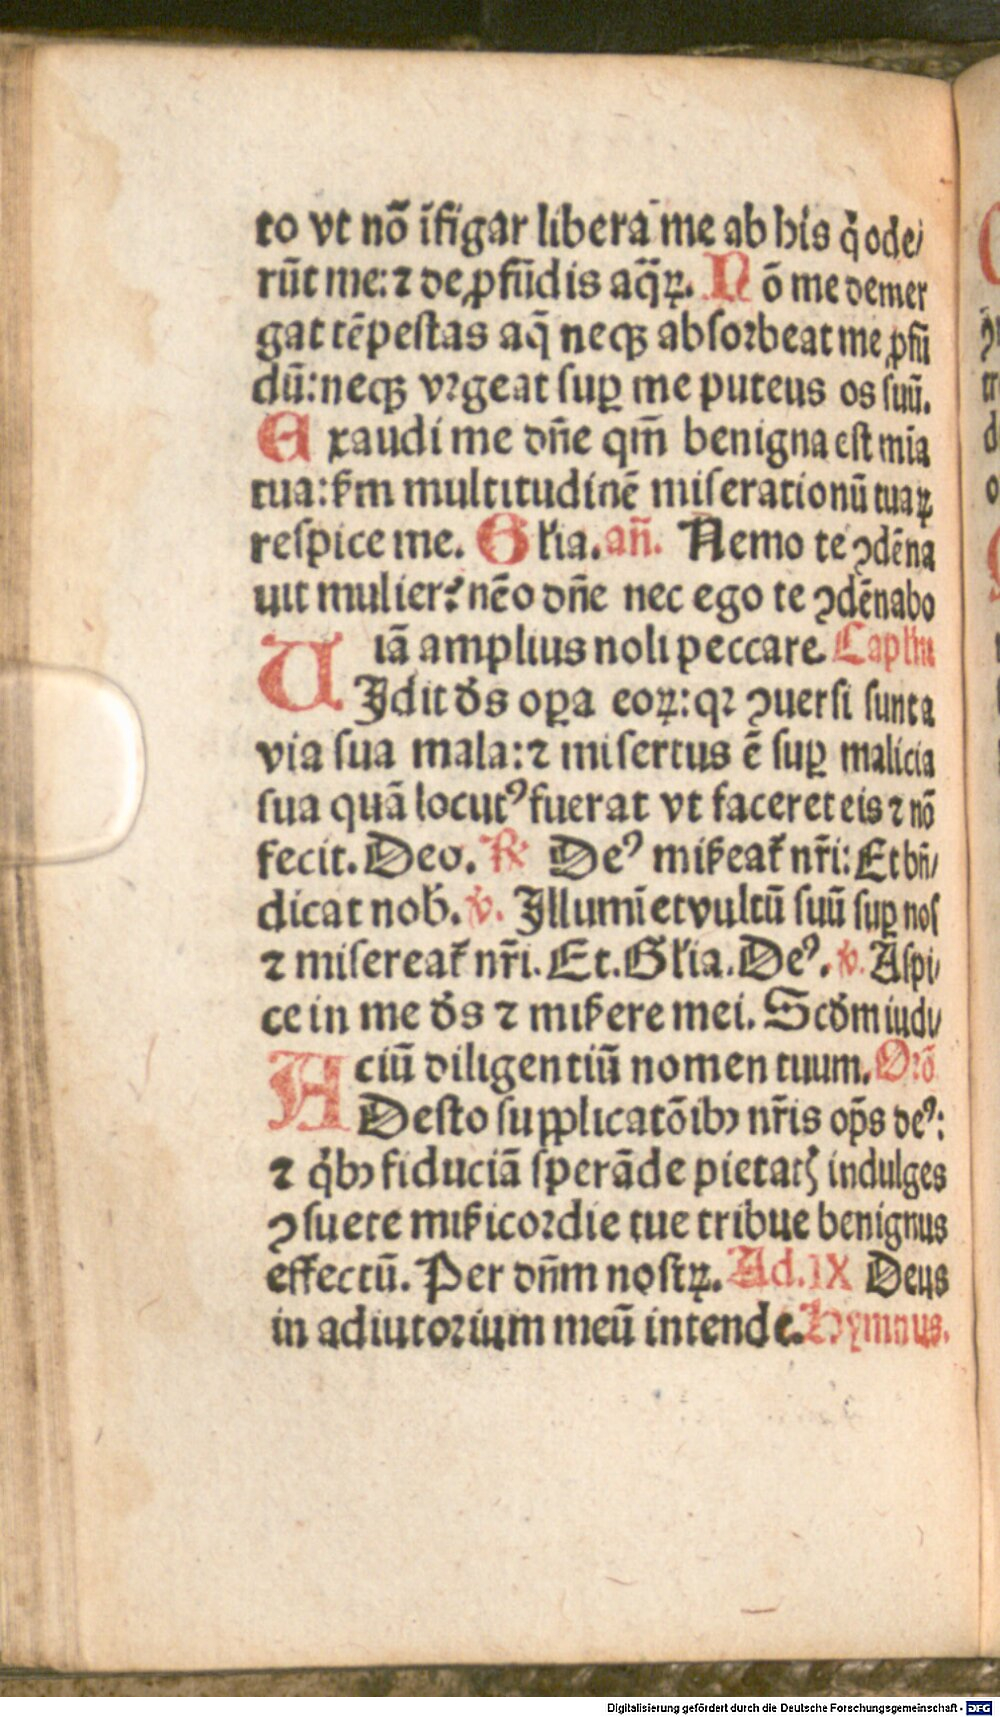 to vt nō īfigar libera me ab his q̇ ode/
rūt me: ⁊ de ꝓfūdis aq̄ꝝ. Nō me demer
gat tēpestas aq̄ neqꝫ absorbeat me ꝓfū
dū: neqꝫ vrgeat suꝑ me puteus os suū.
Exaudi me dn̄e qm̄ benigna est mīa
tua: ẜm multitudinē miserationū tuaꝝ
respice me. Gl̓ia. an̄. Nemo te ꝯdēna
uit mulier? nēo dn̄e nec ego te ꝯdēnabo
iā amplius noli peccare. Capl̓m
UJdit d̓s oꝑa eoꝝ: qꝛ ꝯuersi sunt a
via sua mala: ⁊ misertus ē suꝑ malicia
sua quā locutꝰ fuerat vt faceret eis ⁊ nō
fecit. Deo. ℟ Deꝰ miẜeat̓ nr̄i: Et bn̄/
dicat nob̓. ℣. Jllumīet vultū suū suꝑ nos
⁊ misereat̓ nr̄i. Et. Gl̓ia. Deꝰ. ℣. Aspi/
ce in me d̓s ⁊ miẜere mei. Scd̓m iudi/
ciū diligentiū nomen tuum. Orō
ADesto supplicatōibꝫ nr̄is op̄s deꝰ:
⁊ q̇bꝫ fiduciā sperāde pietatꝭ indulges
ꝯsuete miẜicordie tue tribue benignus
effectū. Per dn̄m nostꝝ. Ad. IX Deus
in adiutorium meū intende. Hymnus.
Digitalisierung gefördert durch die Deutsche Forschungsgemeinschaft - DFG